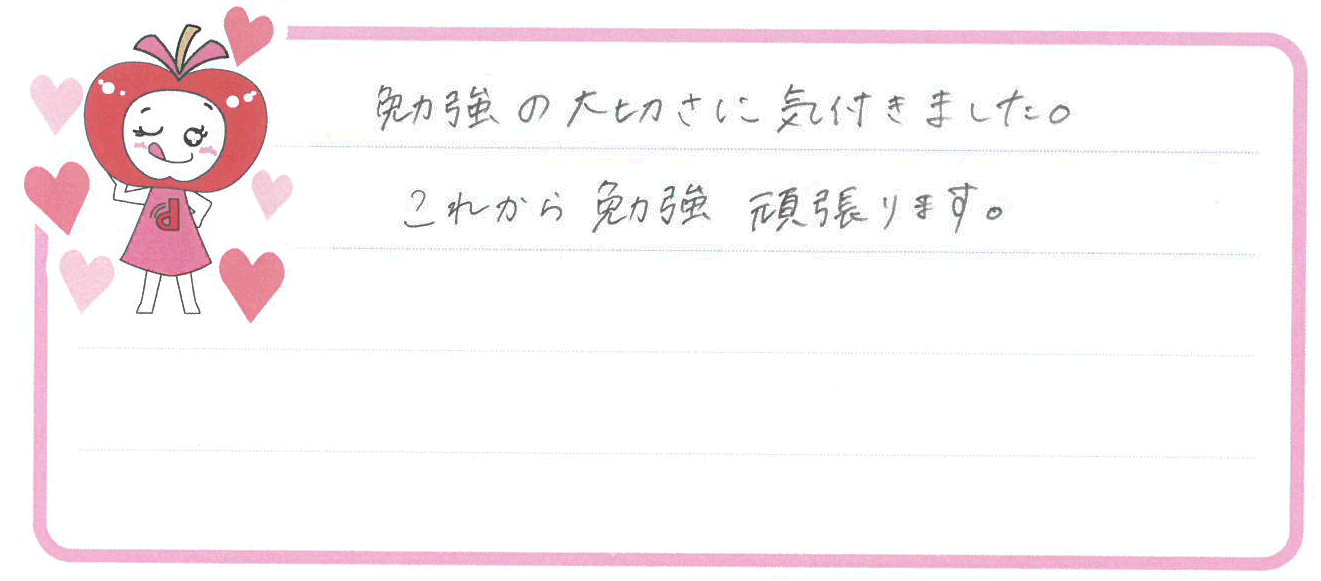 勉強の大切さに気付きました。
これから勉強 頑張ります。